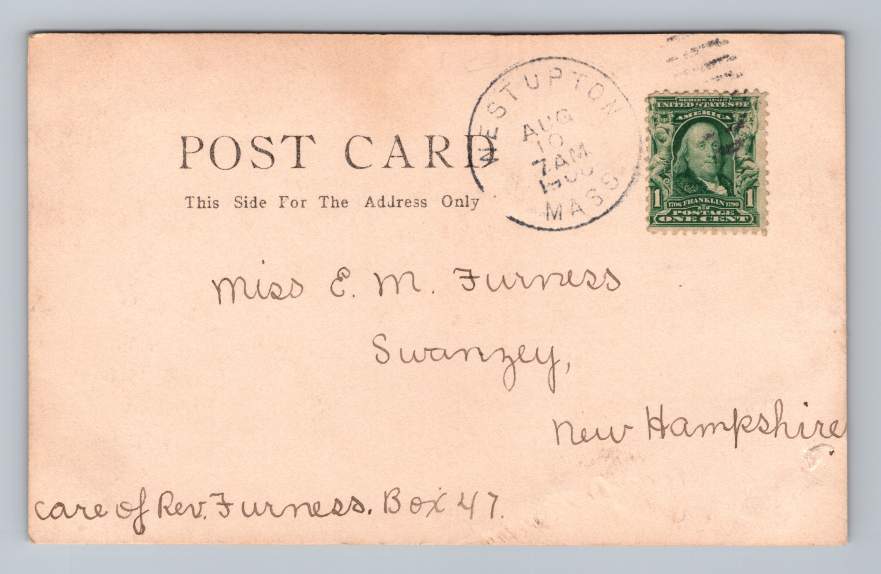 WEST UPTON
AUG
10
7 AM
MASS
SERIES 1902
UNITED STATES OF
AMERICA
1 1706 FRANKLIN 1790 1
POSTAGE
ONE CENT
POST CARD
This Side For The Address Only
Miss E. M. Furness
Swanzey,
New Hampshire
care of Rev. Furness. Box 47.